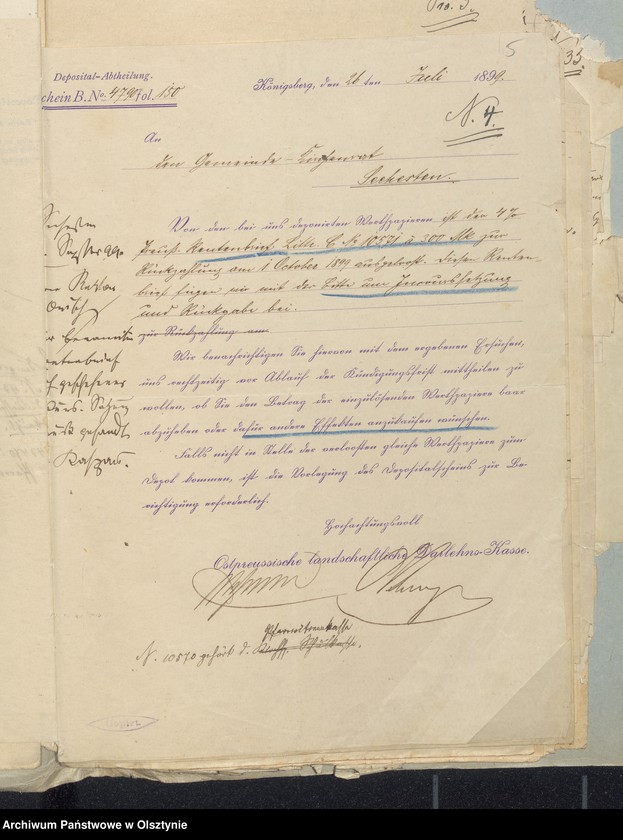 No. 3.
33.
5
Deposital-Abtheilung.
Schein B. No. 4790 fol. 150
Königsberg, den 26 ten Juli 1899.
N. 4.
An
den Gemeinde-Kirchenrat
Seehesten.
Von den bei uns deponirten Werthpapieren ist der 4%
Preuß. Rentenbrief Litt. C № 10571 à 300 Mk zur
Rückzahlung am 1 October 1899 ausgeloost. Diesen Renten-
brief fügen wir mit der Bitte um Inkurssetzung
und Rückgabe bei.
zur Rückzahlung am
Wir benachrichtigen Sie hiervon mit dem ergebenen Ersuchen,
uns rechtzeitig vor Ablauf der Kündigungsfrist mittheilen zu
wollen, ob Sie den Betrag der einzulösenden Werthpapiere baar
abzuheben oder dafür andere Effekten anzukaufen wünschen.
Falls nicht in Stelle der verloosten gleiche Werthpapiere zum
Depot kommen, ist die Vorlegung des Depositalscheins zur Be-
richtigung erforderlich.
Hochachtungsvoll
Ostpreussische landschaftliche Darlehns-Kasse.
Pfarrwitwenkasse
N. 10570 gehört d.
Seehesten
benannten
Rentenbrief
geschehener
gesandt
Archiwum Państwowe w Olsztynie